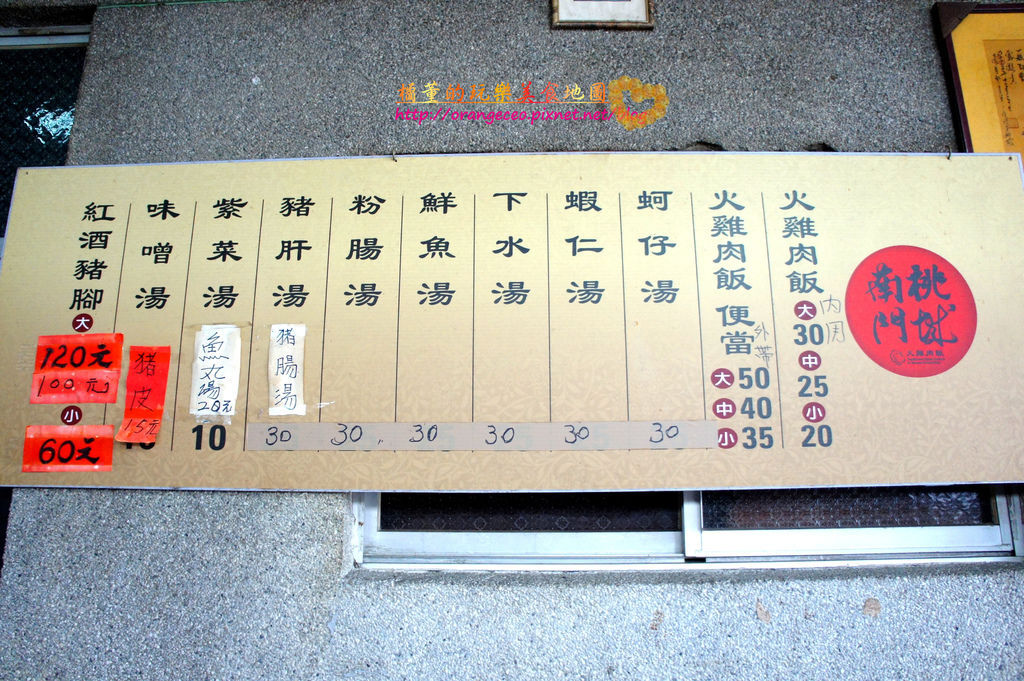 橘董的玩樂美食地圖
http://orangeceo.pixnet.net/blog
桃城
南門
火雞肉飯
火雞肉飯
大
30
內用
中
25
小
20
火雞肉飯
便當
外帶
大 50
中 40
小 35
蚵仔湯
30
蝦仁湯
30
下水湯
30
鮮魚湯
30
粉腸湯
30
豬肝湯
豬腸湯
30
紫菜湯
魚丸湯
20元
10
味噌湯
豬皮
15元
紅酒豬腳
大
120元
100元
小
60元